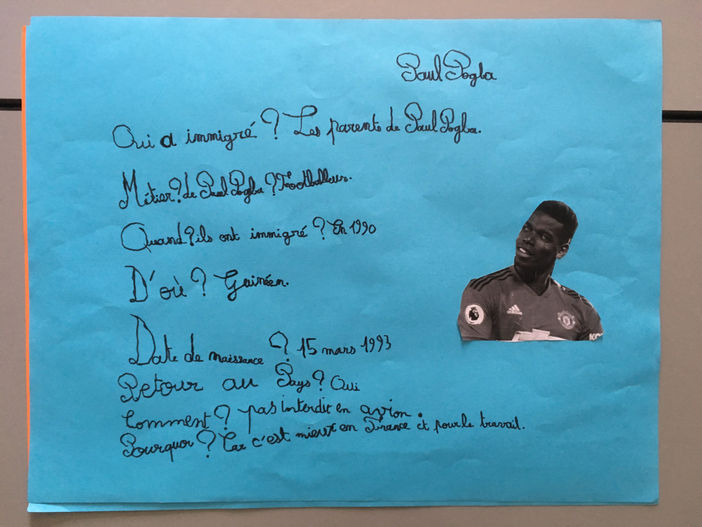 Paul Pogba
Qui a immigré ? Les parents de Paul Pogba.
Métier ? de Paul Pogba ? Footballeur.
Quand ? ils ont immigré ? En 1990
D'où ? Guinéen.
Date de naissance ? 15 mars 1993
Retour au Pays ? Oui
Comment ? pas interdit en avion.
Pourquoi ? Car c'est mieux en France et pour le travail.